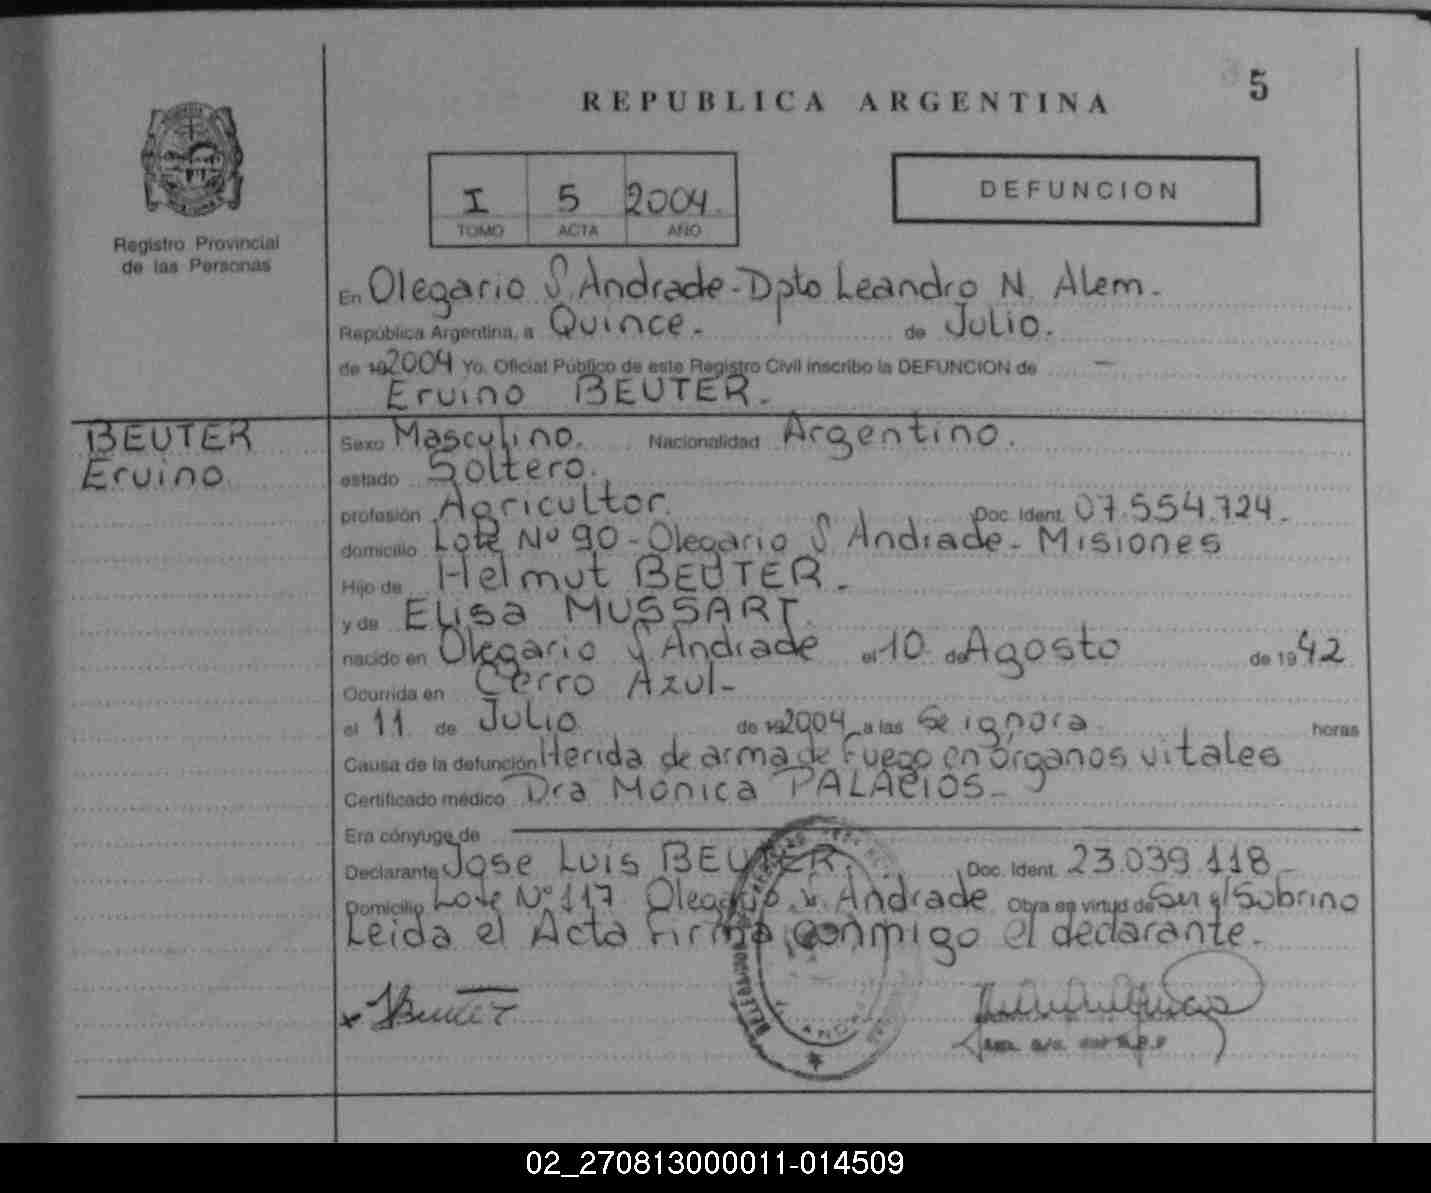 5
REPUBLICA ARGENTINA
I 5 2004
TOMO ACTA AÑO
DEFUNCION
Registro Provincial
de las Personas
En Olegario V. Andrade - Dpto Leandro N. Alem.
República Argentina, a Quince. de Julio.
de 192004 Yo, Oficial Público de este Registro Civil inscribo la DEFUNCION de —
Ervino BEUTER.
BEUTER
Ervino
Sexo Masculino. Nacionalidad Argentino.
estado Soltero.
profesión Agricultor. Doc. Ident. 07.554.724.
domicilio Lote Nº 90 - Olegario V Andrade - Misiones
Hijo de Helmut BEUTER.
y de Elisa MUSSART.
nacido en Olegario V Andrade el 10 de Agosto de 1942
Ocurrida en Cerro Azul-
el 11 de Julio de 192004 a las Se ignora horas
Causa de la defunción Herida de arma de Fuego en órganos vitales
Certificado médico Dra Mónica PALACIOS-
Era cónyuge de
Declarante Jose Luis BEUTER. Doc. Ident. 23.039.118
Domicilio Lote Nº 117 Olegario V. Andrade Obra en virtud de Sobrino
Leida el Acta Firma conmigo el declarante.
02_270813000011-014509